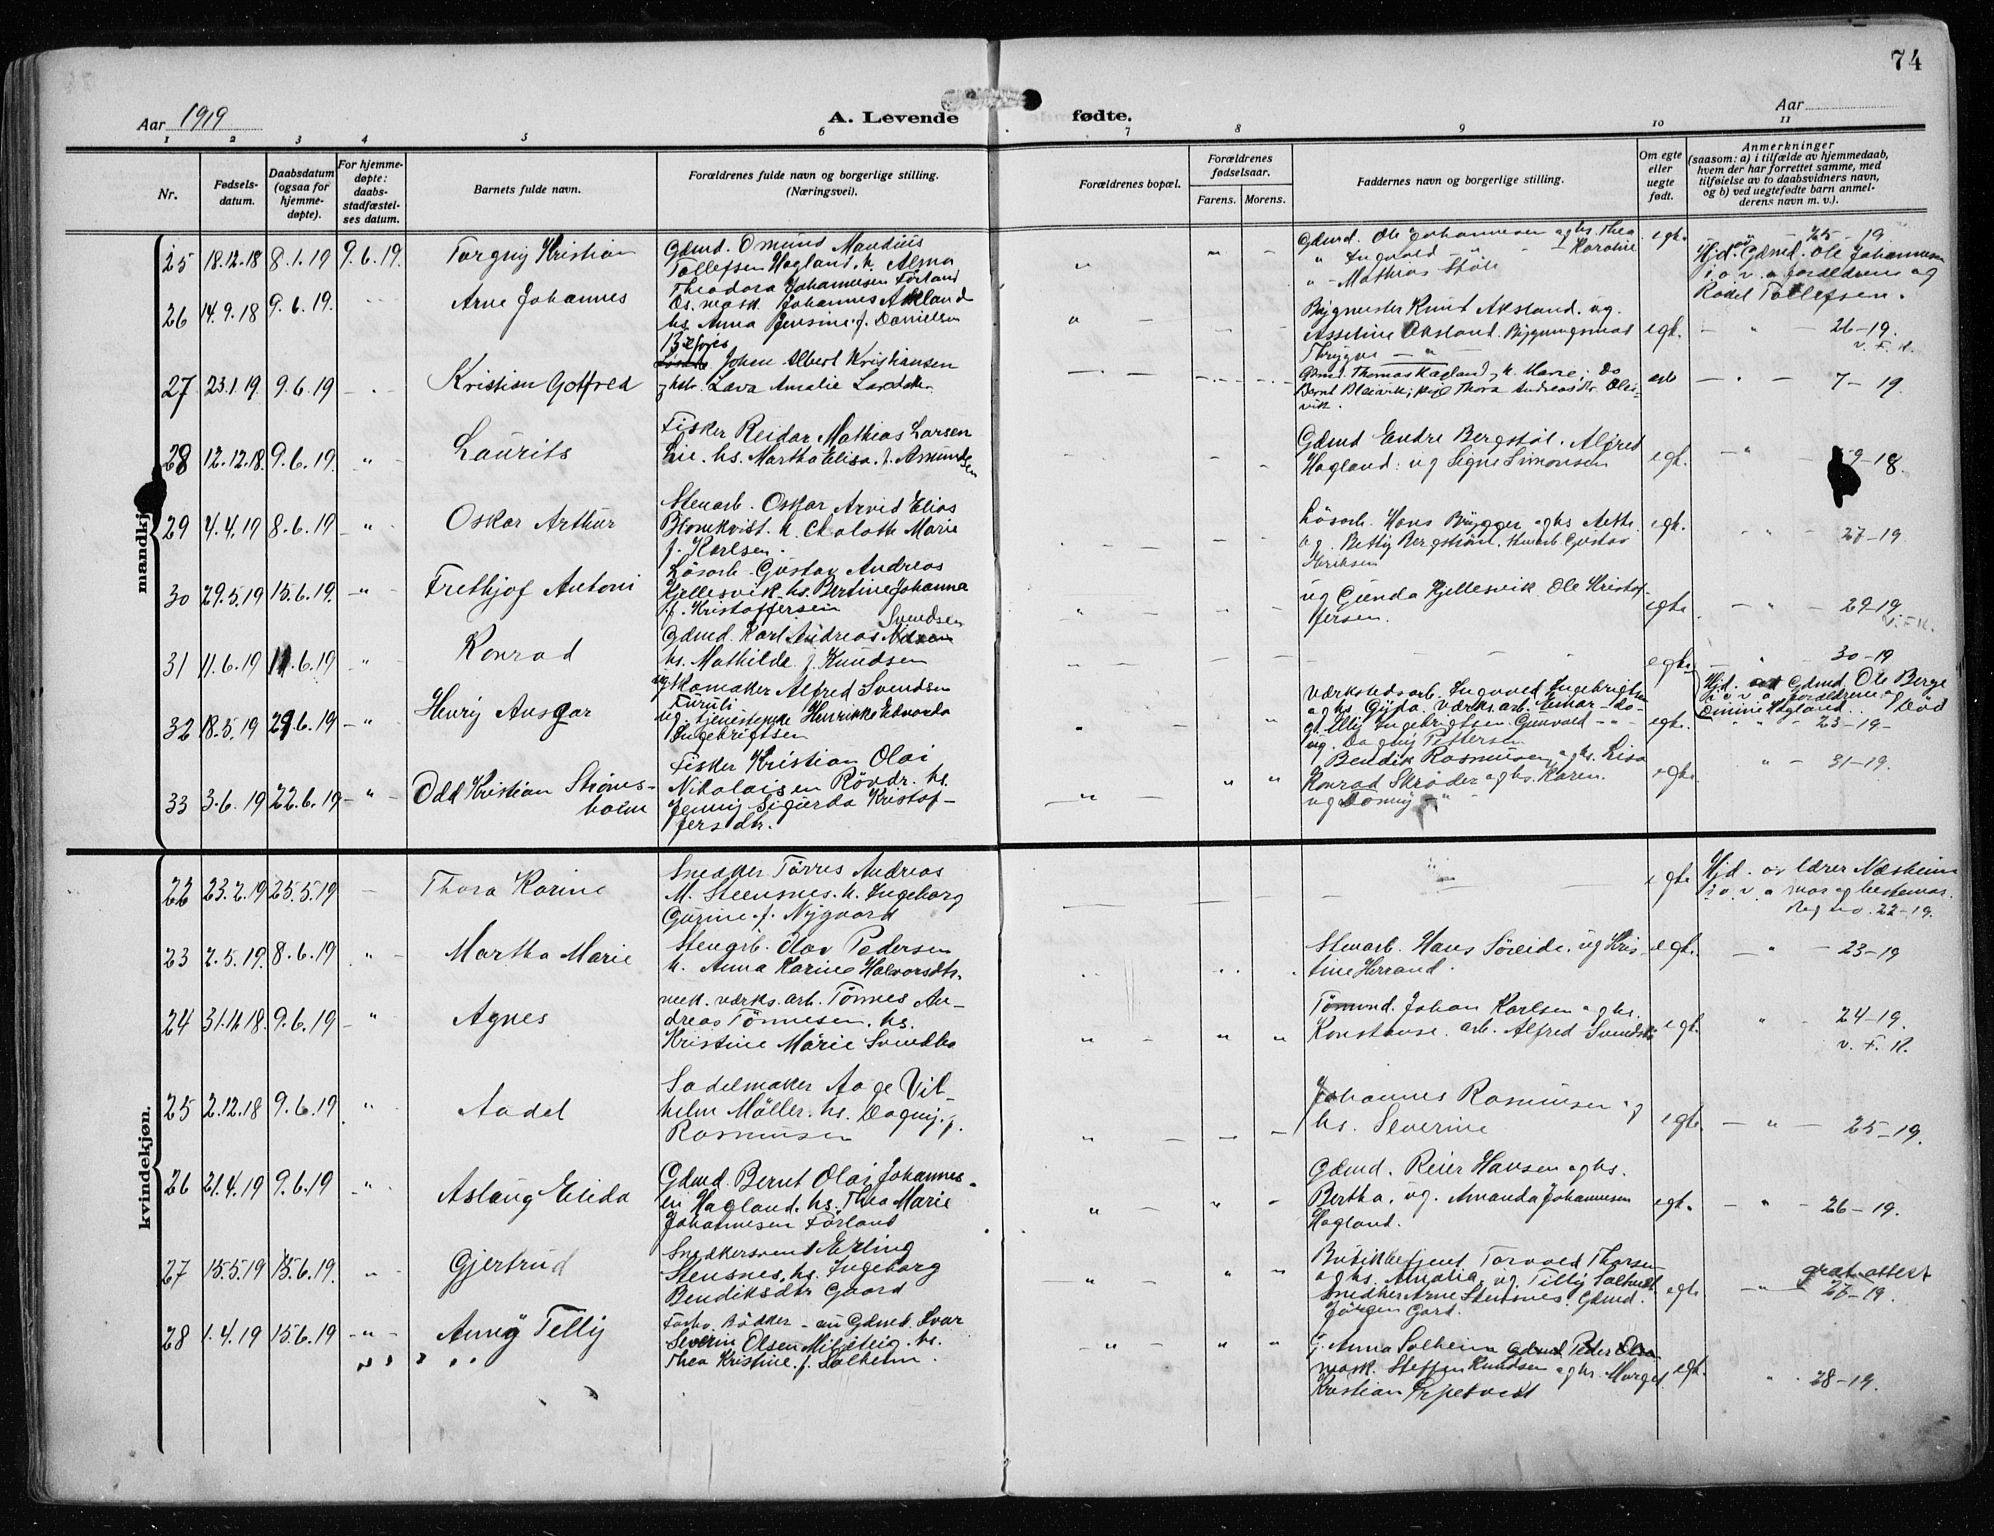 74
Aar 1919
A. Levende fødte.
Aar
1 2 3 4 5 6 7 8 9 10 11
Nr.
Fødsels-
datum.
Daabsdatum
(ogsaa for
hjemme-
døpte).
For hjemme-
døpte:
daabs-
stadfæstel-
ses datum.
Barnets fulde navn.
Forældrenes fulde navn og borgerlige stilling.
(Næringsveil).
Forældrenes bopæl.
Forældrenes
fødselsaar.
Farens. Morens.
Faddernes navn og borgerlige stilling.
Om egte
eller
uegte
født.
Anmerkninger
(saasom: a) i tilfælde av hjemmedaab,
hvem der har forrettet samme, med
tilføielse av to daabsvidners navn,
og b) ved uegtefødte barn anmel-
derens navn m. v.).
mandkj
25 18.12.18 8.1.19 9.6.19. Torgny Kristian
Gdmd. Omund Maudius
Tollefsen Hagland, h. Alma
Theodora Johannesen Förland
Gdmd. Ole Johannesen og hs. Thea
" Ingvald " " Karoline
" Mathias Støle
egt.
25-19
Hjd. Gdmd. Ole Johannesen
i o. v. a forældrene og
Rakel Tollefsen.
26 14.9.18 9.6.19. Arne Johannes
mask. Johannes Aksland
hs. Anna Jensine f. Danielsen
Bygmester Knut Aksland. og
Asseline Aksland. Bygningsmand
Thrygve — "
egt.
26-19.
v. F. K.
27 23.1.19 9.6.19 Kristian Gotfred
Johan Albert Kristiansen
Lava Amalie
Gdmd. Thomas Hagland, h. Marie; Do
Bernt Bleivik; Thora Andreasdtr. Olis-
vik.
7-19
28 12.12.18 9.6.19 " Laurits
Fisker Reidar Mathias Larsen
Lie. hs. Martha Elisa f. Amundsen
Gdmd Endre Bergstøl. Alfred
Hagland: og Signe Simonsen
egt.
9-18.
29 4.4.19 8.6.19 " Oskar Arthur
Stenarb. Oskar Arvid Elias
Blomkvist. h. Chalott Marie
f. Karlsen.
Løsarb. Hans Brygger og hs
og. Betty Bergstrøm. Stenarb Gustav
Eriksen
egt.
27-19.
30 29.5.19 15.6.19. " Frethjof Antoni
Løsarb. Gustav Andreas
Kjellesvik. hs. Bertine Johanna
f. Kristoffersen
og Gunda Kjellesvik Ole Kristof-
fersen.
egt.
29-19.
v. F. K.
31 11.6.19 11.6.19 " Konrad
Svendsen
Gdmd. Karl Andreas
hs. Mathilde f. Knudsen
egt.
30-19
Hjd. Gdmd. Ole Berge
i o v a forældrene og
Hagland. Död
32 18.5.19 29.6.19 " Henry Ansgar
Skomaker Alfred Svendsen
Furuli
ug. tjenestepike Henrikke Edvarda
Ingebrigtsen
Værkstedsarb. Ingvald Ingebrigtsen
og hs. Gyda. Værks. arb. Einar - Do
Elly Ingebrigtsen Gunvald - " -
og. Dagny Pettersen
egt.
23-19-
33 3.6.19 22.6.19 " Odd Kristian Strøms-
holm
Fisker Kristian Olai
Nikolaisen Røvdr. hs.
Jenny Sigurda Kristof-
fersdtr.
Bendik Rasmusen og hs. Lisa
Konrad Skrøder og hs. Karen.
og Dømmy — "
egt.
31-19.
kvindekjøn.
22 23.2.19 25.5.19 - Thora Karine
Snedker Tørres Andreas
M. Steensnes. h. Ingeborg
Gurine f. Nygaard
egt.
Hjd. av lærer Næsheim
i o. v. a mor og bestemor.
Reg no. 22-19.
23 2.5.19. 8.6.19 " Martha Marie
Stenarb. Olav Pedersen
h. Anna Karine Halvorsdtr.
Stenarb. Hans Søreide, og Kris-
tine Herrand.
egt.
23-19
24 31.12.18. 9.6.19 " Agnes
mek. værks. arb. Tønnes An-
dreas Tønnesen. hs.
Kristine Marie
Johan Karlsen og hs.
Konstanse. arb. Alfred
egt.
24-19.
v. F. K.
25 2.12.18 9.6.19 " Aadel
Sadelmaker Aage Vil-
helm Møller. hs. Dagny f.
Rasmusen
Johannes Rasmusen og
hs. Severine
egt.
25-19.
26 21.4.19 9.6.19 " Aslaug Elida
Gdmd. Bernt Olai Johannes-
en Hagland. hs. Thea Marie
Johannesen Förland
Gdmd. Reier Hansen og hs.
Bertha, og. Amanda Johannesen
Hagland.
egt.
26-19.
27 15.5.19 15.6.19 " Gjertrud
Snedkersvend Erling
Stensnes, hs. Ingeborg
Bendiksdtr Gaard
Butikbetjent Torvald Thorsen
og hs. Amalia, og Tilly
Snedker Arne Stensnes. Gdmd.
Jörgen Gard.
egt.
grat. attest
27-19.
28 1.4.19 15.6.19 " Anny Telly
Forhv. Bødker - en Gdmd. Ivar
Severin Olsen hs.
Thea Kristine f. Solheim.
Anna Solheim Gdmd Peder
mask. Steffen Knudsen og hs. Marget.
Kristian
egt.
28-19.